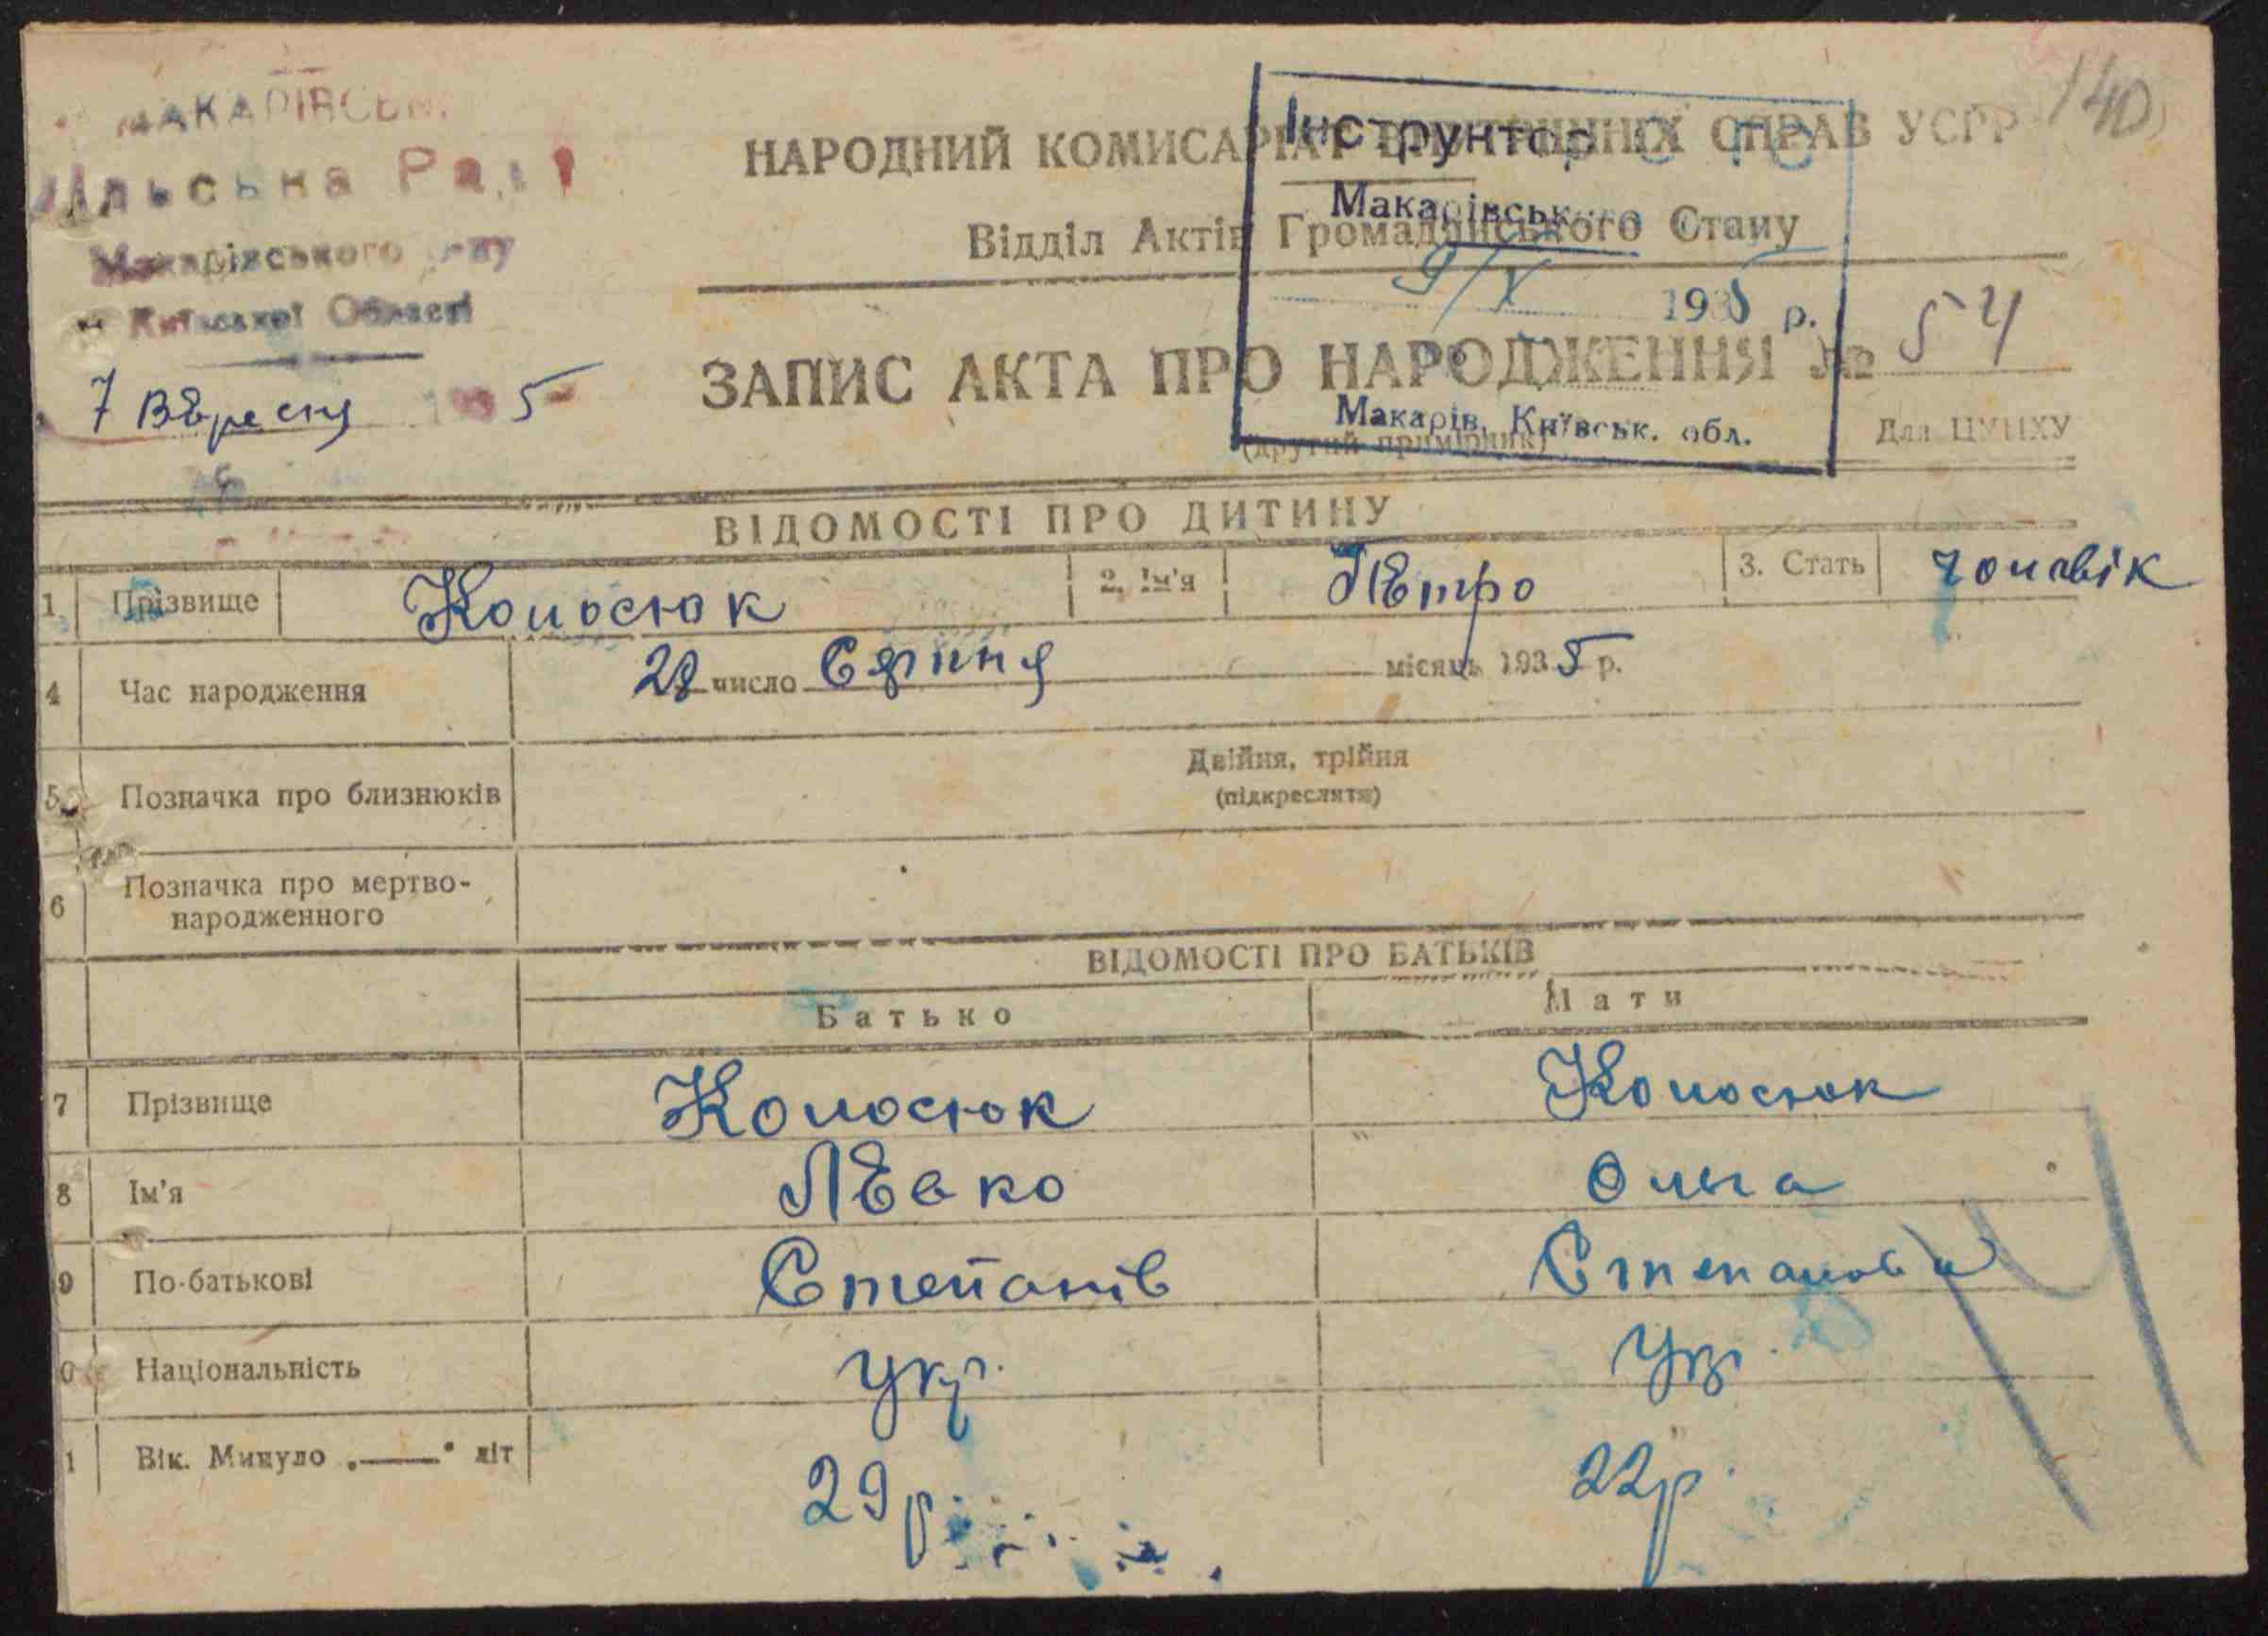 140
МАКАРІВСЬК
Сільська Рада
Макарівського р-ну
Київської Області
7 Вересня 1935
НАРОДНИЙ КОМИСАРІАТ ВНУТРІШНІХ СПРАВ УСРР
Відділ Актів Громадянського Стану
Інструктор
Макарівськ
9/X 1935 р.
Макарів, Київськ. обл.
ЗАПИС АКТА ПРО НАРОДЖЕННЯ № 54
(другий примірник)
Для ЦУНХУ
ВІДОМОСТІ ПРО ДИТИНУ
1 Прізвище Колосюк 2. Ім'я Петро 3. Стать чоловік
4 Час народження 28 число Серпня місяць 1935 р.
5 Позначка про близнюків Двійня, трійня
(підкреслити)
6 Позначка про мертво-
народженного
ВІДОМОСТІ ПРО БАТЬКІВ
Батько Мати
7 Прізвище Колосюк Колосюк
8 Ім'я Левко Ольга
9 По-батькові Степанів Степанова
0 Національність Укр. Укр.
1 Вік. Минуло „——" літ 29 р. 22 р.